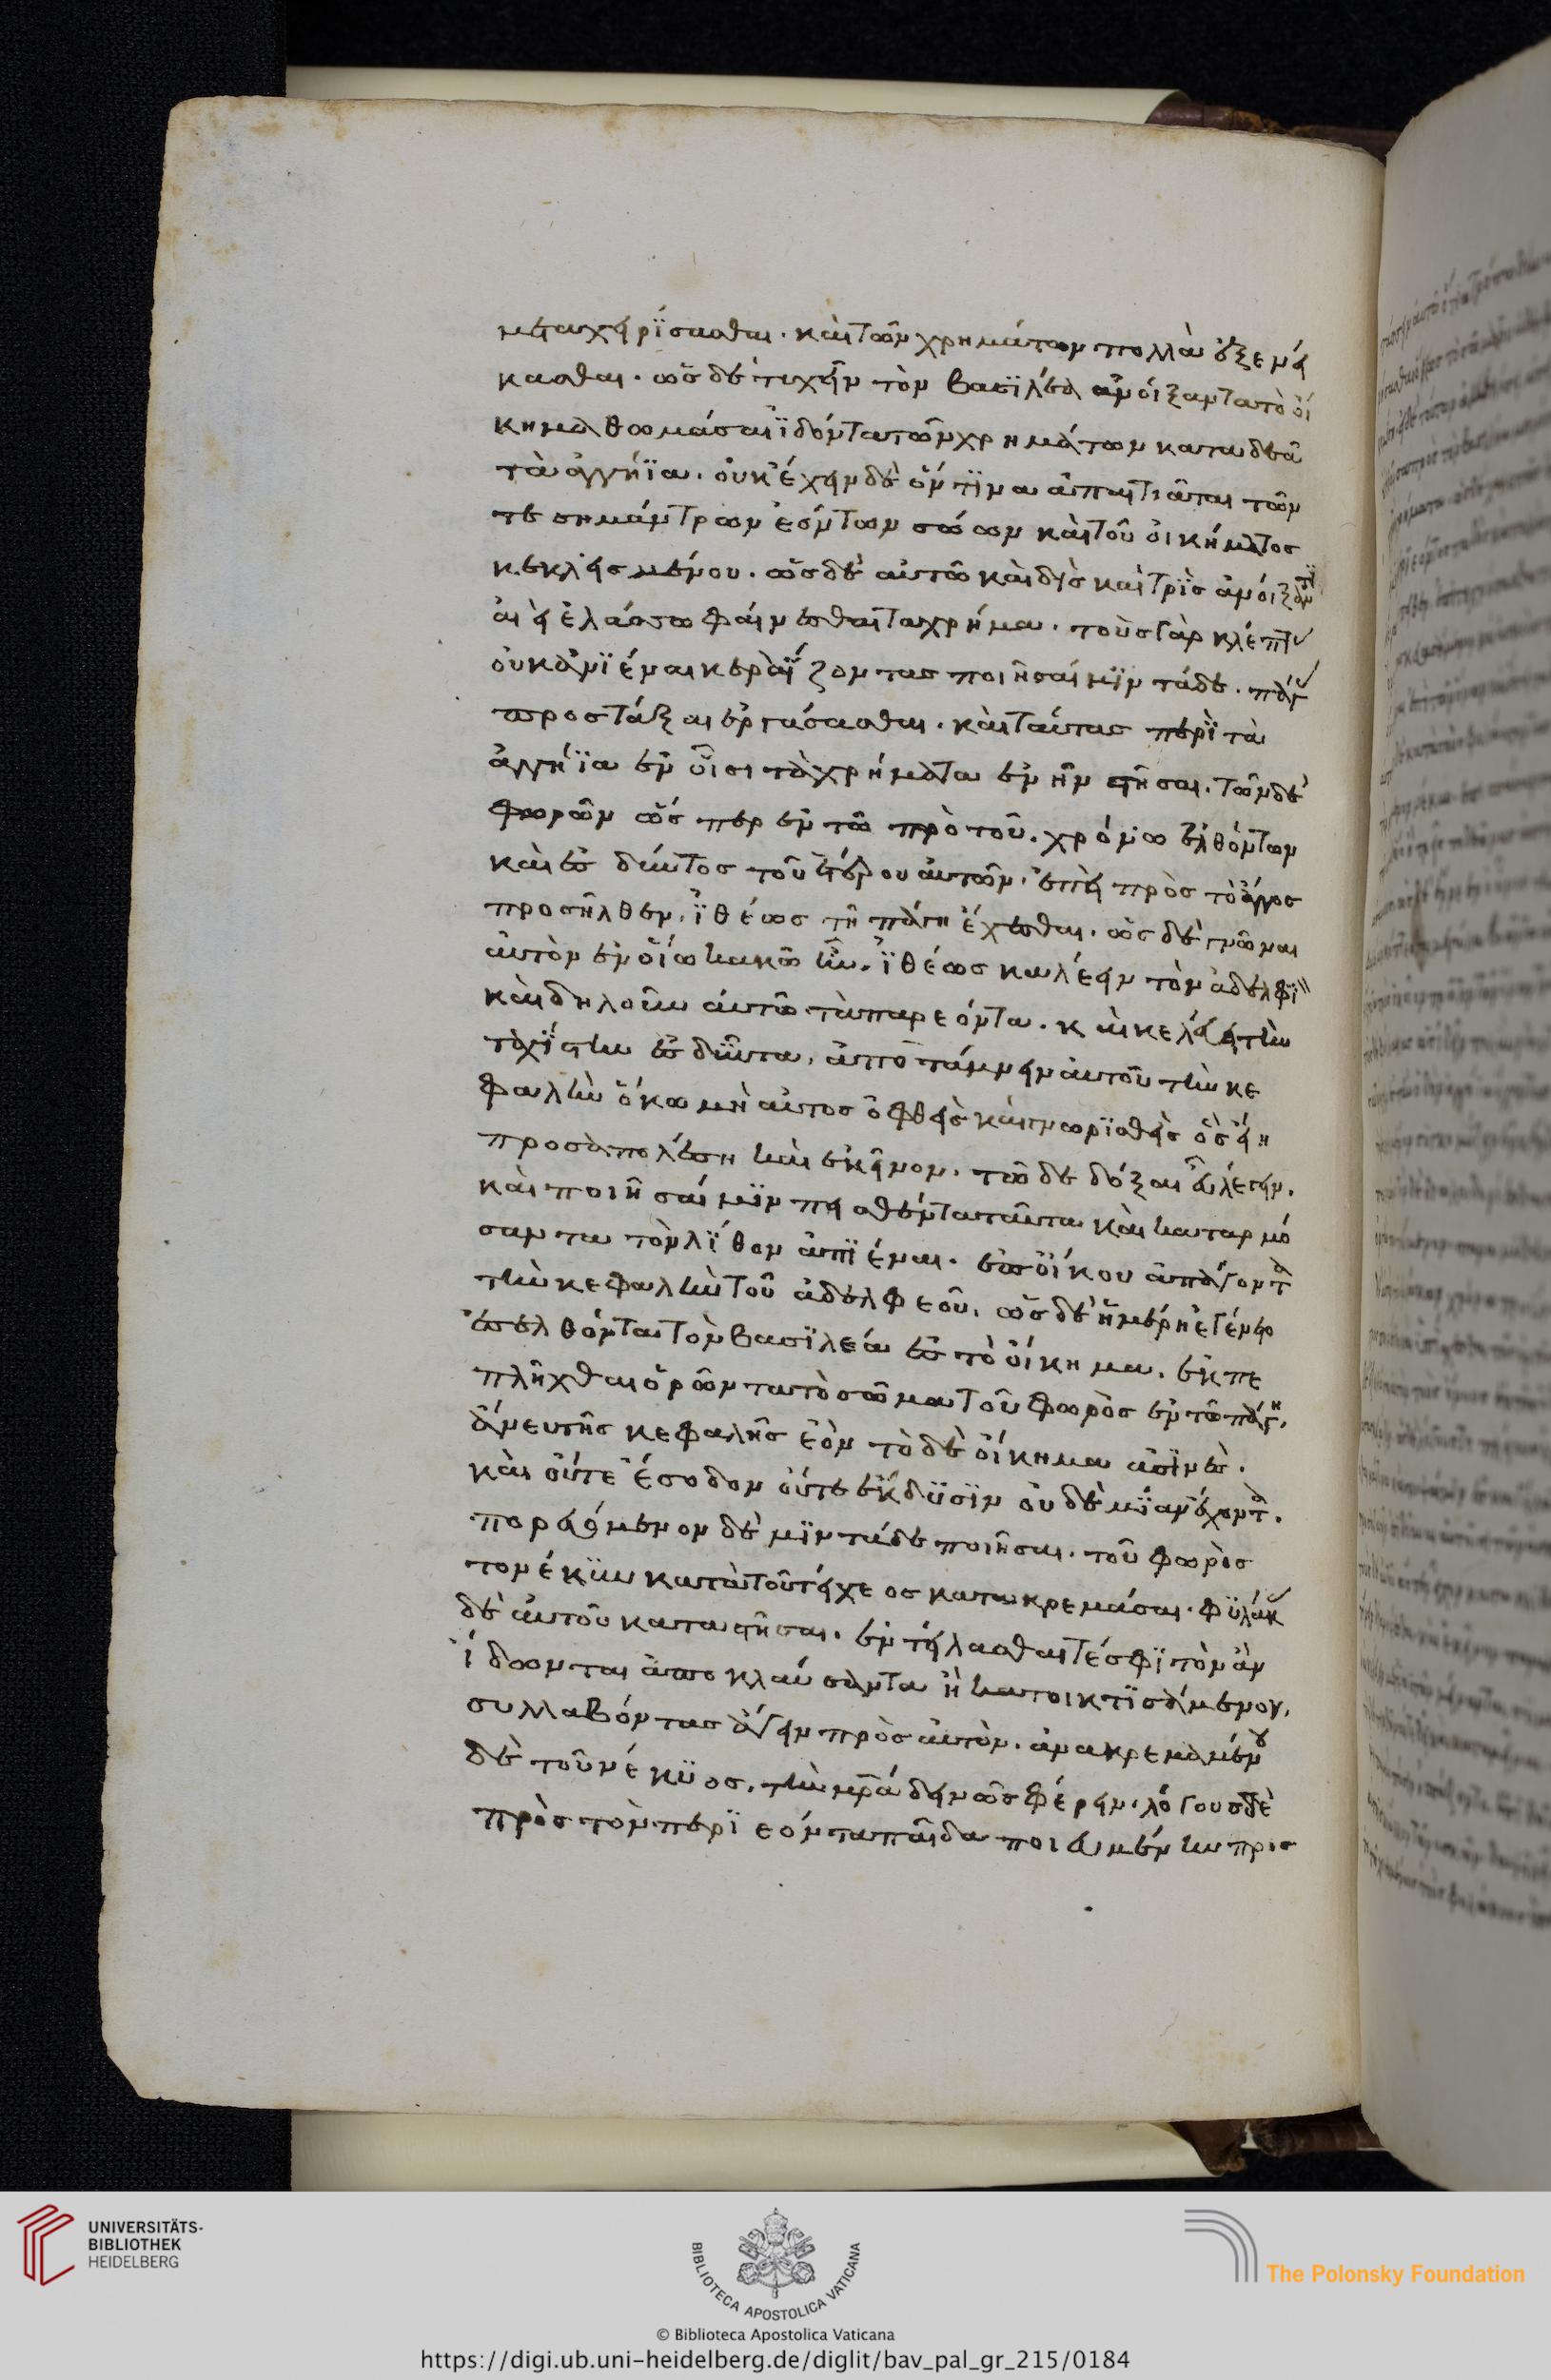 μεταχειρίσασθαι. καὶ τῶν χρημάτων πολλὰ ἐξενεί
κασθαι. ὡς δὲ τυχεῖν τὸν βασιλέα ἀνοίξαντα τὸ οἴ
κημα θωμάσαι ἰδόντα τῶν χρημάτων καταδεᾶ
τὰ ἀγγήϊα. οὐκ ἔχειν δὲ ὅντινα ἐπαιτιᾶται τῶν
τε σημάντρων ἐόντων σώων καὶ τοῦ οἰκήματος
κεκλεισμένου. ὡς δὲ αὐτῶ καὶ δὶς καὶ τρὶς ἀνοίξαντι
αἰεὶ ἐλάσσω φαίνεσθαι τὰ χρήματα. τοὺς γὰρ κλέπτας
οὐκ ἀνιέναι κεραΐζοντας ποιῆσαί μιν τάδε. πάγας
προστάξαι ἐργάσασθαι. καὶ ταύτας περὶ τὰ
ἀγγήϊα ἐν οἷσι τὰ χρήματα ἐνῆν στῆσαι. τῶν δὲ
φωρῶν ὥσπερ ἐν τῶ πρὸ τοῦ χρόνω ἐλθόντων
καὶ ἐσδύντος τοῦ ἑτέρου αὐτῶν. ἐπεὶ πρὸς τὸ ἄγγος
προσῆλθεν. ἰθέως τῆ πάγη ἐνέχεσθαι. ὡς δὲ γνῶναι
αὐτὸν ἐν οἵω κακῶ ἦν. ἰθέως καλέειν τὸν ἀδελφεὸν
καὶ δηλοῦν αὐτῶ τὰ παρεόντα. καὶ κελεύειν τὴν
ταχίστην ἐσδύντα. ἀποτάμνειν αὐτοῦ τὴν κε
φαλὴν ὅκω μὴ αὐτὸς ὀφθεὶς καὶ γνωρισθεὶς ὃς εἴη
προσαπολέση καὶ ἐκεῖνον. τῶ δὲ δόξαι εὖ λέγειν.
καὶ ποιῆσαί μιν πεισθέντα ταῦτα καὶ καταρμό
σαντα τὸν λίθον ἀπιέναι. ἐς οἴκου ἀπάγοντα
τὴν κεφαλὴν τοῦ ἀδελφεοῦ. ὡς δὲ ἡμέρη ἐγένετο
ἐσελθόντα τὸν βασιλέα ἐς τὸ οἴκημα. ἐκπε
πλῆχθαι ὁρῶντα τὸ σῶμα τοῦ φωρὸς ἐν τῶ πάγη.
ἄνευ τῆς κεφαλῆς ἐὸν τὸ δὲ οἴκημα ἀσινὲς.
καὶ οὔτε ἔσοδον οὔτε ἔκδυσιν οὐδεμίαν ἔχοντα.
πορεύμενον δὲ μιν τάδε ποιῆσαι. τοῦ φωρὸς
τὸν έκυν κατὰ τοῦ τείχεος κατακρεμάσαι. φυλάκους
δὲ αὐτοῦ καταστῆσαι. ἐντείλασθαι τέ σφι τὸν ἂν
ἴδωνται ἀποκλαύσαντα ἢ κατοικτισάμενον.
συλλαβόντας ἄγειν πρὸς αὐτὸν. ἀνακρεμαμένου
δὲ τοῦ νέκυος. τὴν μρα δεινῶς φέρειν. λόγους δὲ
πρὸς τὸν περιεόντα παῖδα ποιευμένην προσ
UNIVERSITÄTS-
BIBLIOTHEK
HEIDELBERG
BIBLIOTECA APOSTOLICA VATICANA
© Biblioteca Apostolica Vaticana
The Polonsky Foundation
https://digi.ub.uni-heidelberg.de/diglit/bav_pal_gr_215/0184